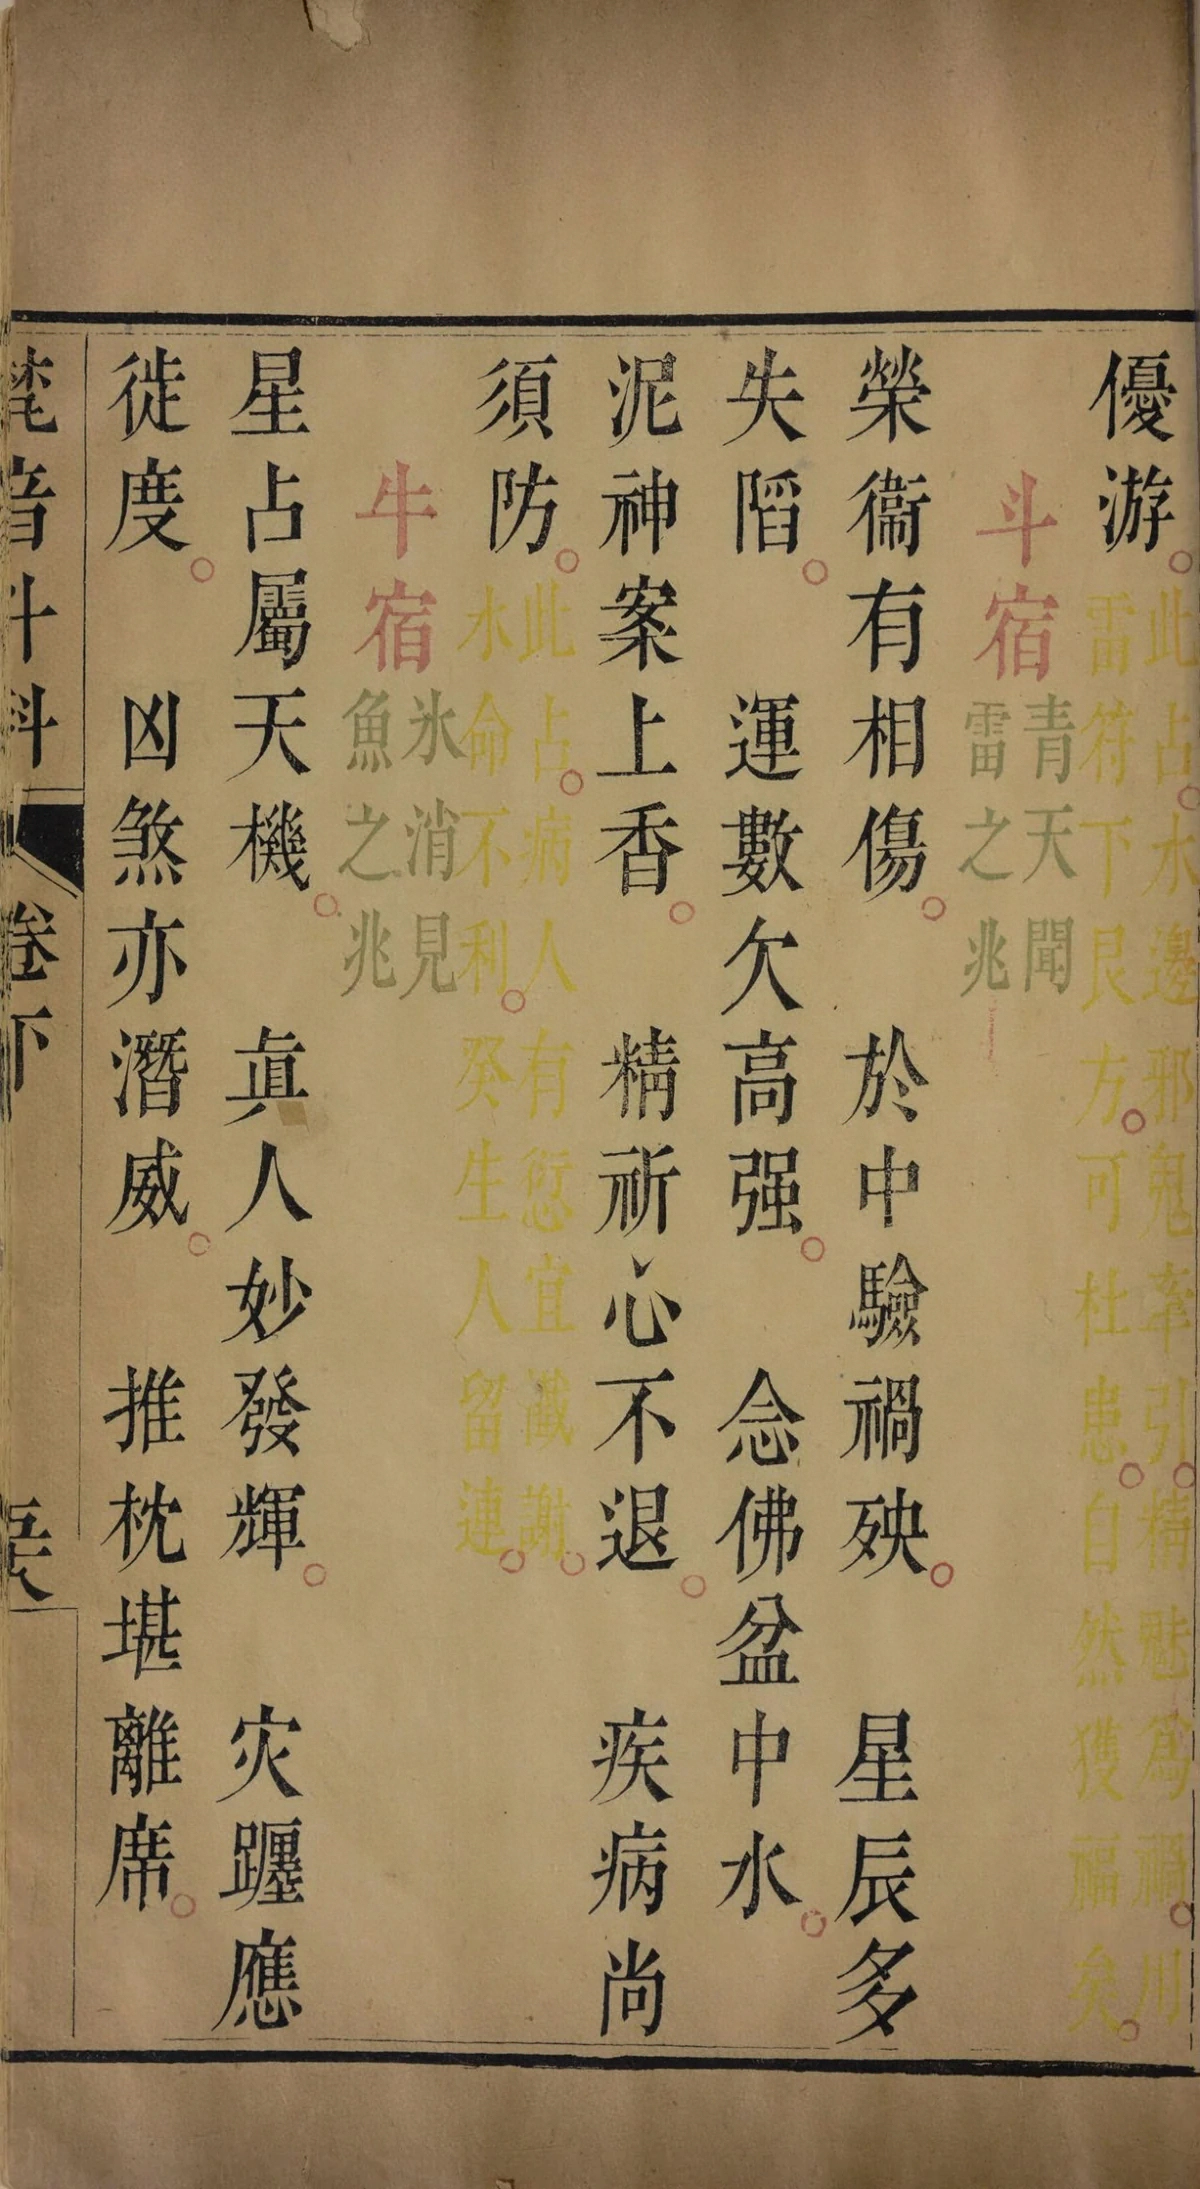 優游。此占。水邊邪鬼牽引。精魅為禍。川
雷符下艮方。可杜患。自然獲福矣。
斗宿青天聞
雷之兆
榮衞有相傷。於中驗禍殃。星辰多
失陷。運數欠高强。念佛盆中水。
泥神案上香。精祈心不退。疾病尚
須防。此占。病人有愆宜懺謝。
水命不利。癸生人留連。
牛宿氷消見
魚之兆
星占屬天機。眞人妙發輝。灾躔應
徙度。凶煞亦潛威。推枕堪離席。
音斗科 卷下